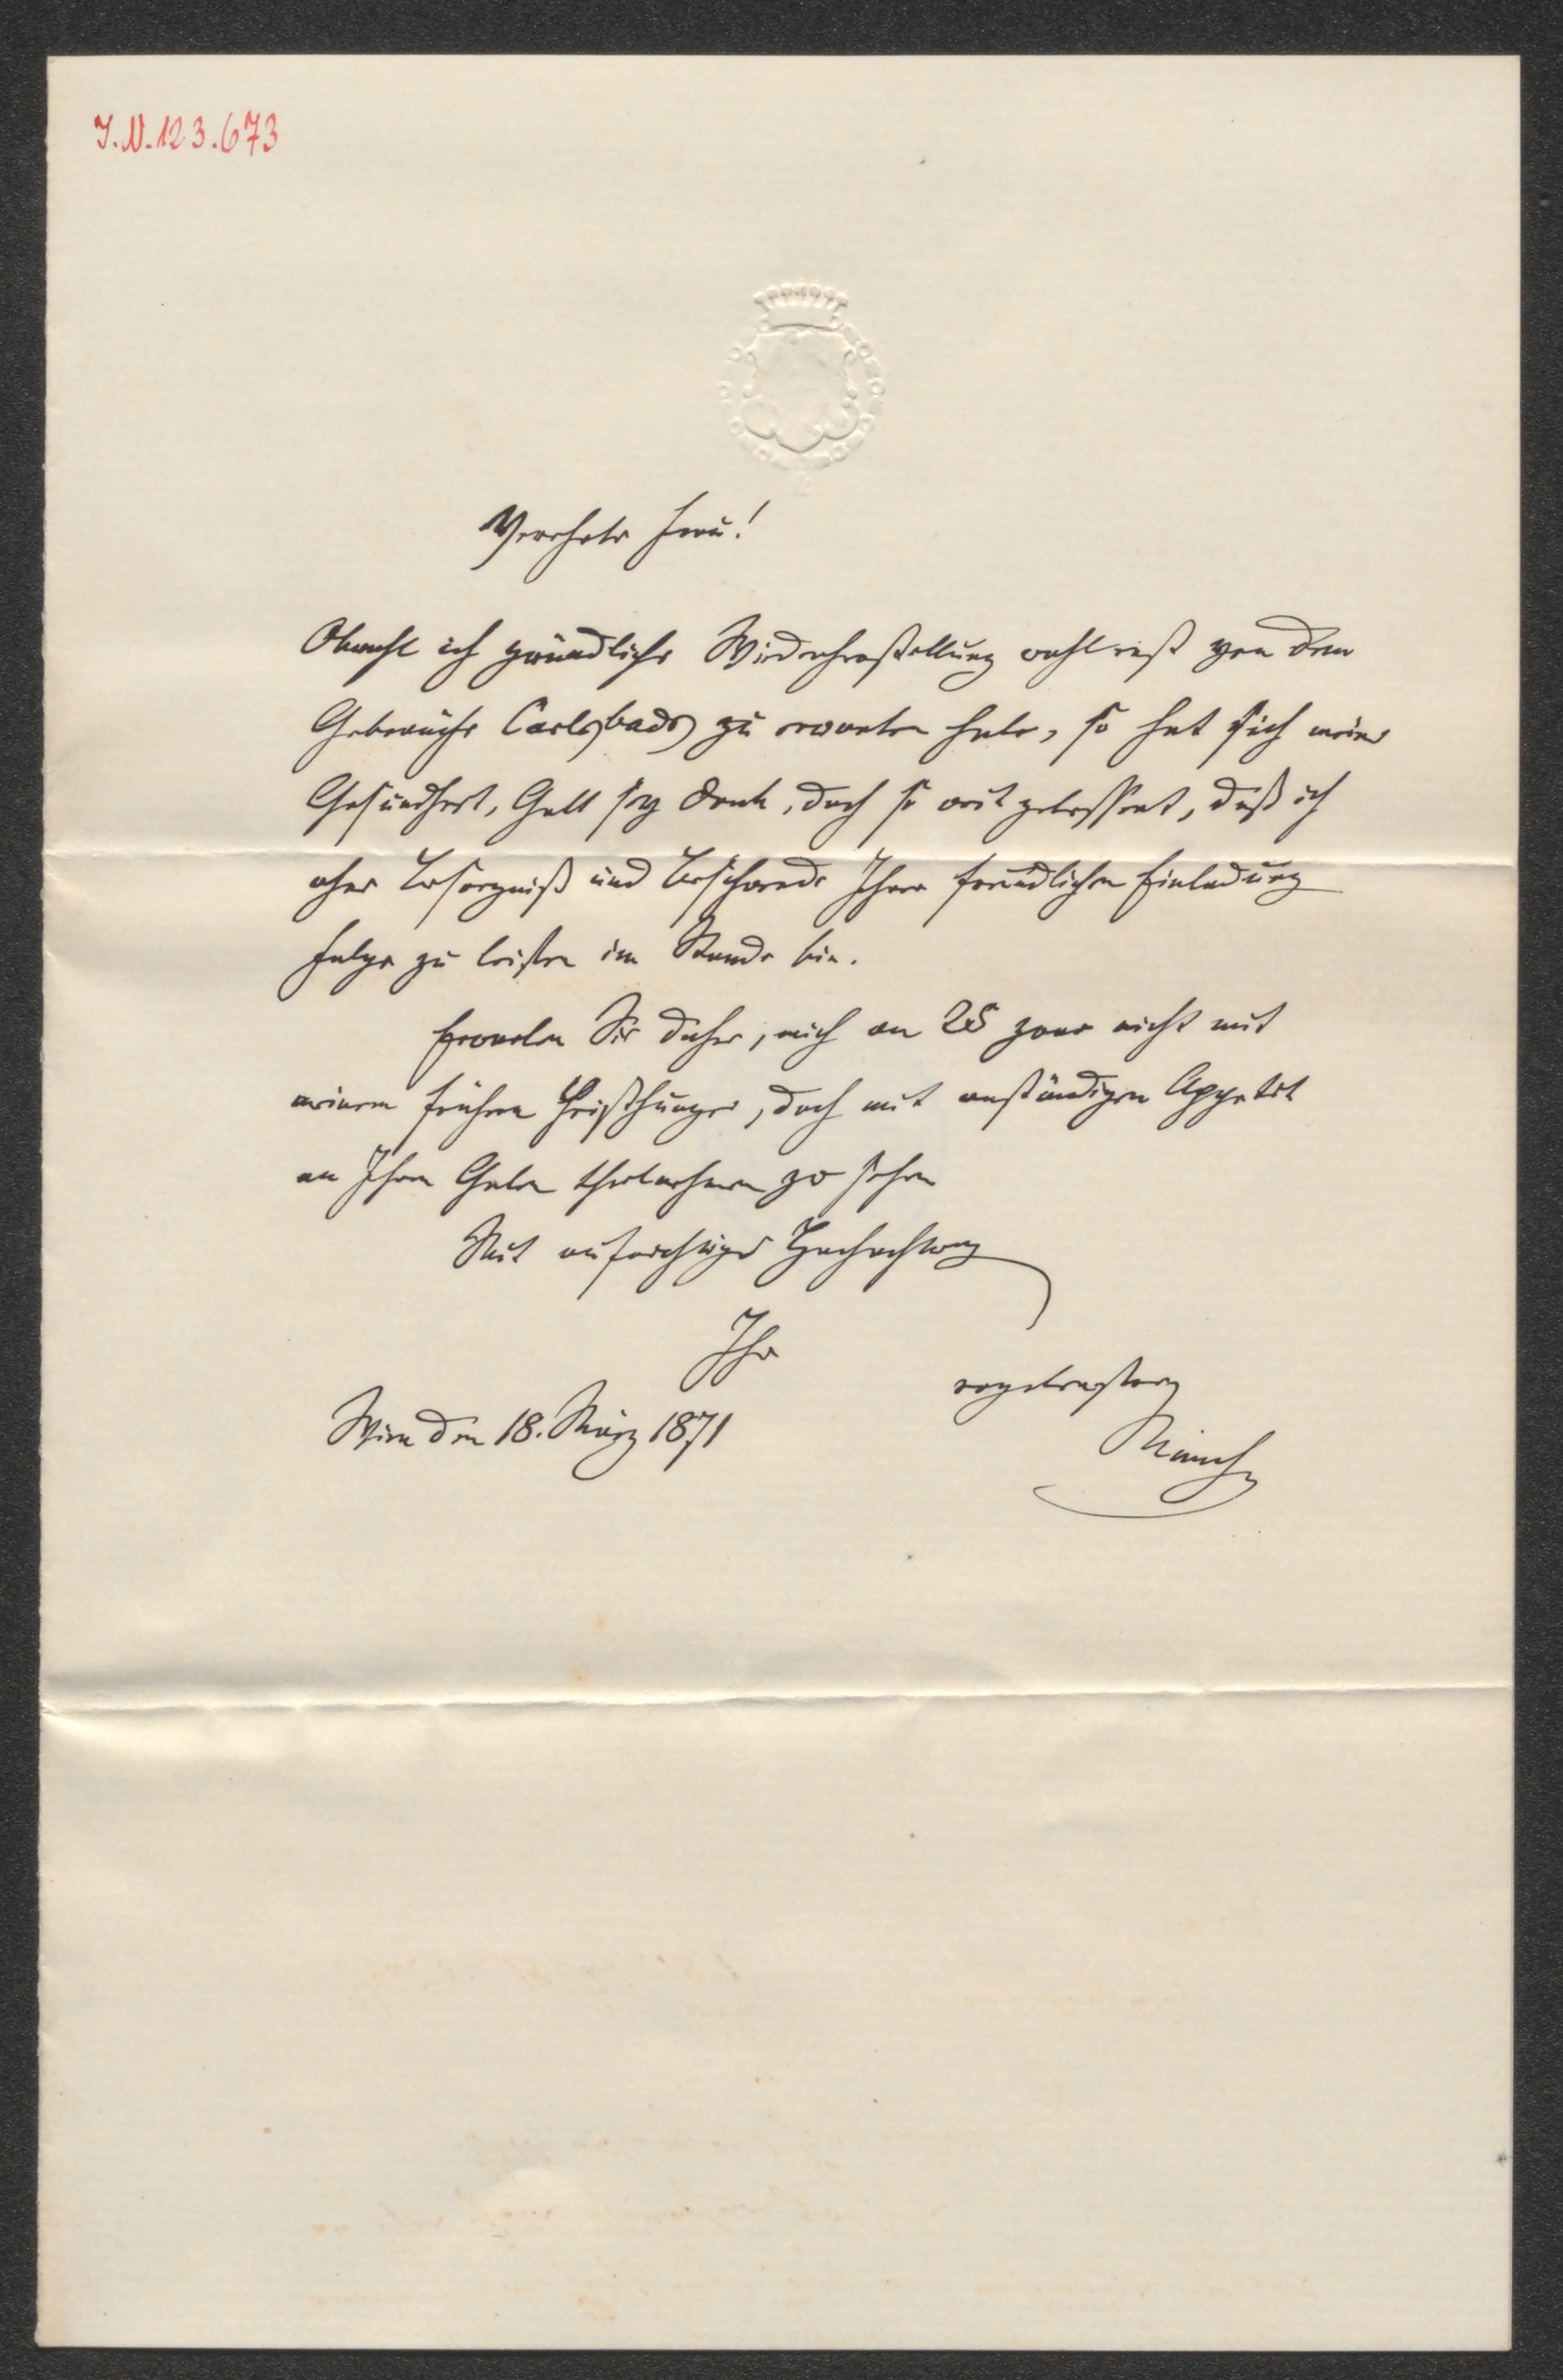 I.N.123.673
Verehrte Frau!
Obwohl ich gründliche Wiederherstellung wohl erst von dem
Gebrauche Carlsbads zu erwarten habe, so hat sich meine
Gesundheit, Gott sey Dank, doch so weit gebessert, daß ich
ohne Besorgniß und Beschwerde Ihrer freundlichen Einladung
Folge zu leisten im Stande bin.
Erwarten Sie daher, mich am 25 zwar nicht mit
meinem frühern Heißhunger, doch mit anständigen Appetit
an Ihren Gaben theilnehmen zu sehen
Mit aufrichtiger Hochachtung
Ihr
ergebenster
Wien den 18. März 1871
Münch